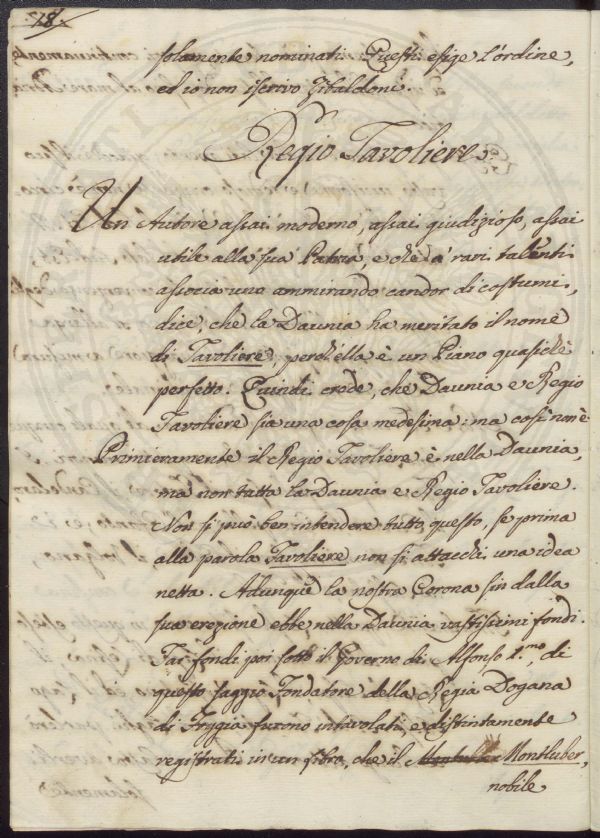 78
solamente nominati. Questi esige l'ordine,
ed io non iscrivo Zibaldoni.
Regio Tavoliere.
Un Autore assai moderno, assai giudizioso, assai
utile alla sua Patria, e che a' rari talenti
associa uno ammirando candor di costumi,
dice, che la Daunia ha meritato il nome
di Tavoliere, perch'ella è un Piano quasichè
perfetto. Quindi crede, che Daunia e Regio
Tavoliere sia una cosa medesima: ma così non è.
Primieramente il Regio Tavoliere è nella Daunia,
ma non tutta la Daunia è Regio Tavoliere.
Non si può ben intendere tutto questo, se prima
alla parola Tavoliere non si attacchi una idea
netta. Adunque la nostra Corona sin dalla
sua erezione ebbe nella Daunia vastissimi fondi.
Tai fondi poi sotto il Governo di Alfonso 1.mo, di
questo saggio Fondatore della Regia Dogana
di Foggia furono intavolati, e distintamente
registrati in un libro, che il Montluber,
nobile